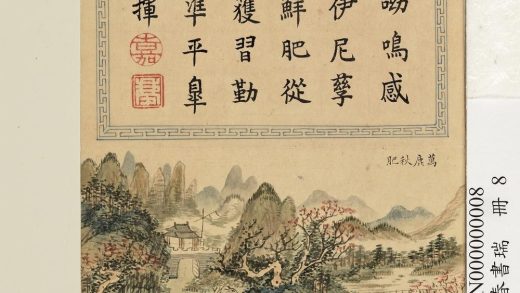 呦鳴感
伊尼孳
鮮肥從
獲習勤
準平皐
揮
嘉
萬鹿秋肥
N000000008
春書瑞 冊 8